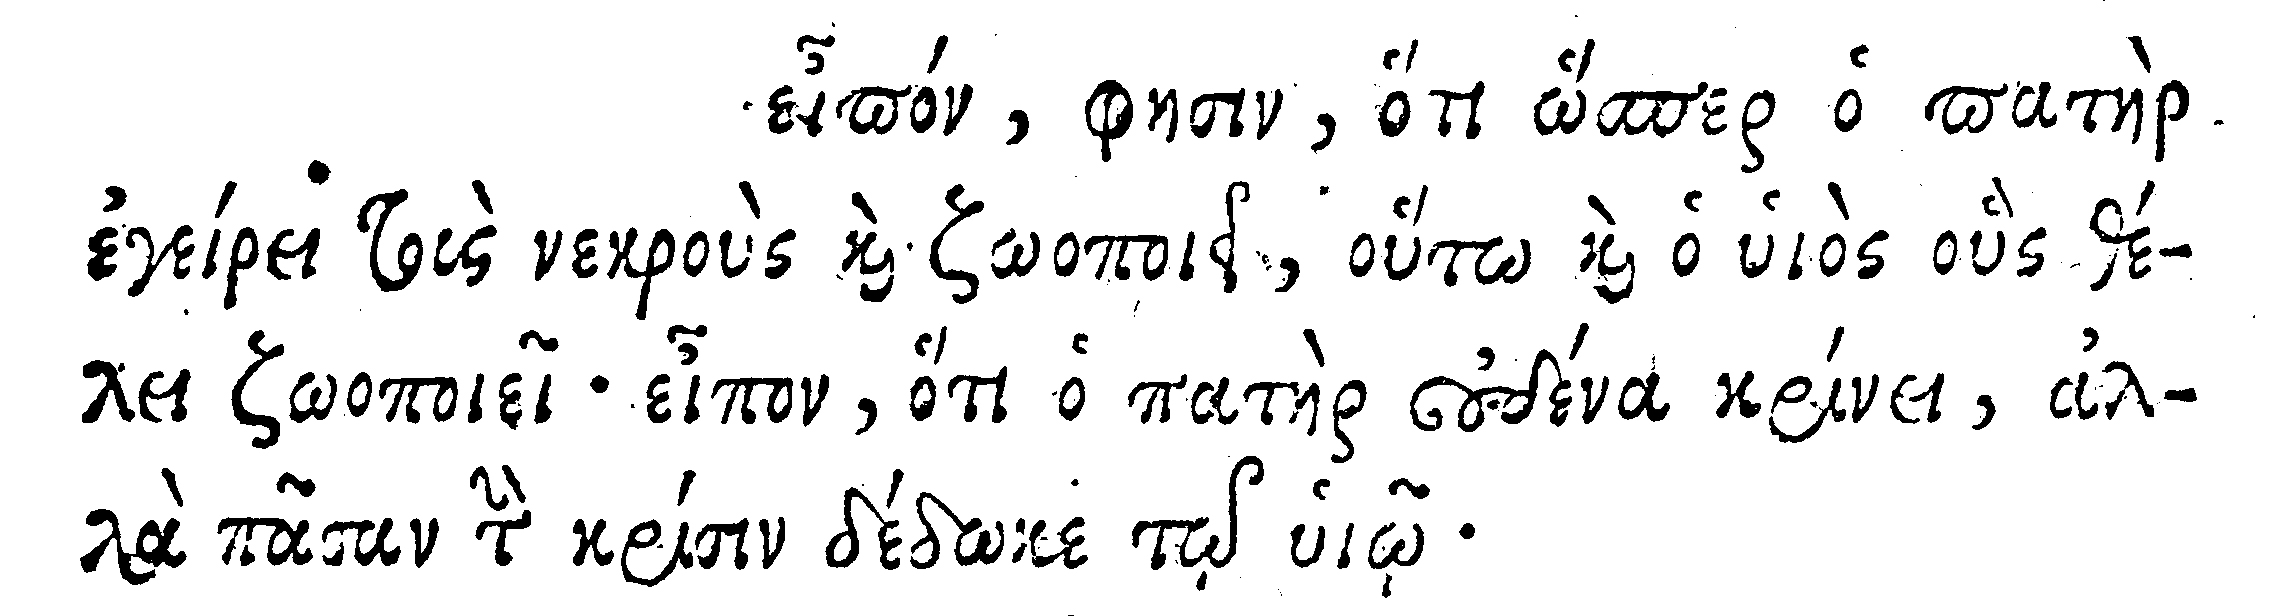 εἶπόν, φησιν, ὅτι ὥσπερ ὁ πατὴρ
ἐγείρει τοὺς νεκροὺς καὶ ζωοποιεῖ, οὕτω καὶ ὁ υἱὸς οὓς θέ-
λει ζωοποιεῖ· εἶπον, ὅτι ὁ πατὴρ οὐδένα κρίνει, ἀλ-
λὰ πᾶσαν τὴν κρίσιν δέδωκε τῷ υἱῷ.